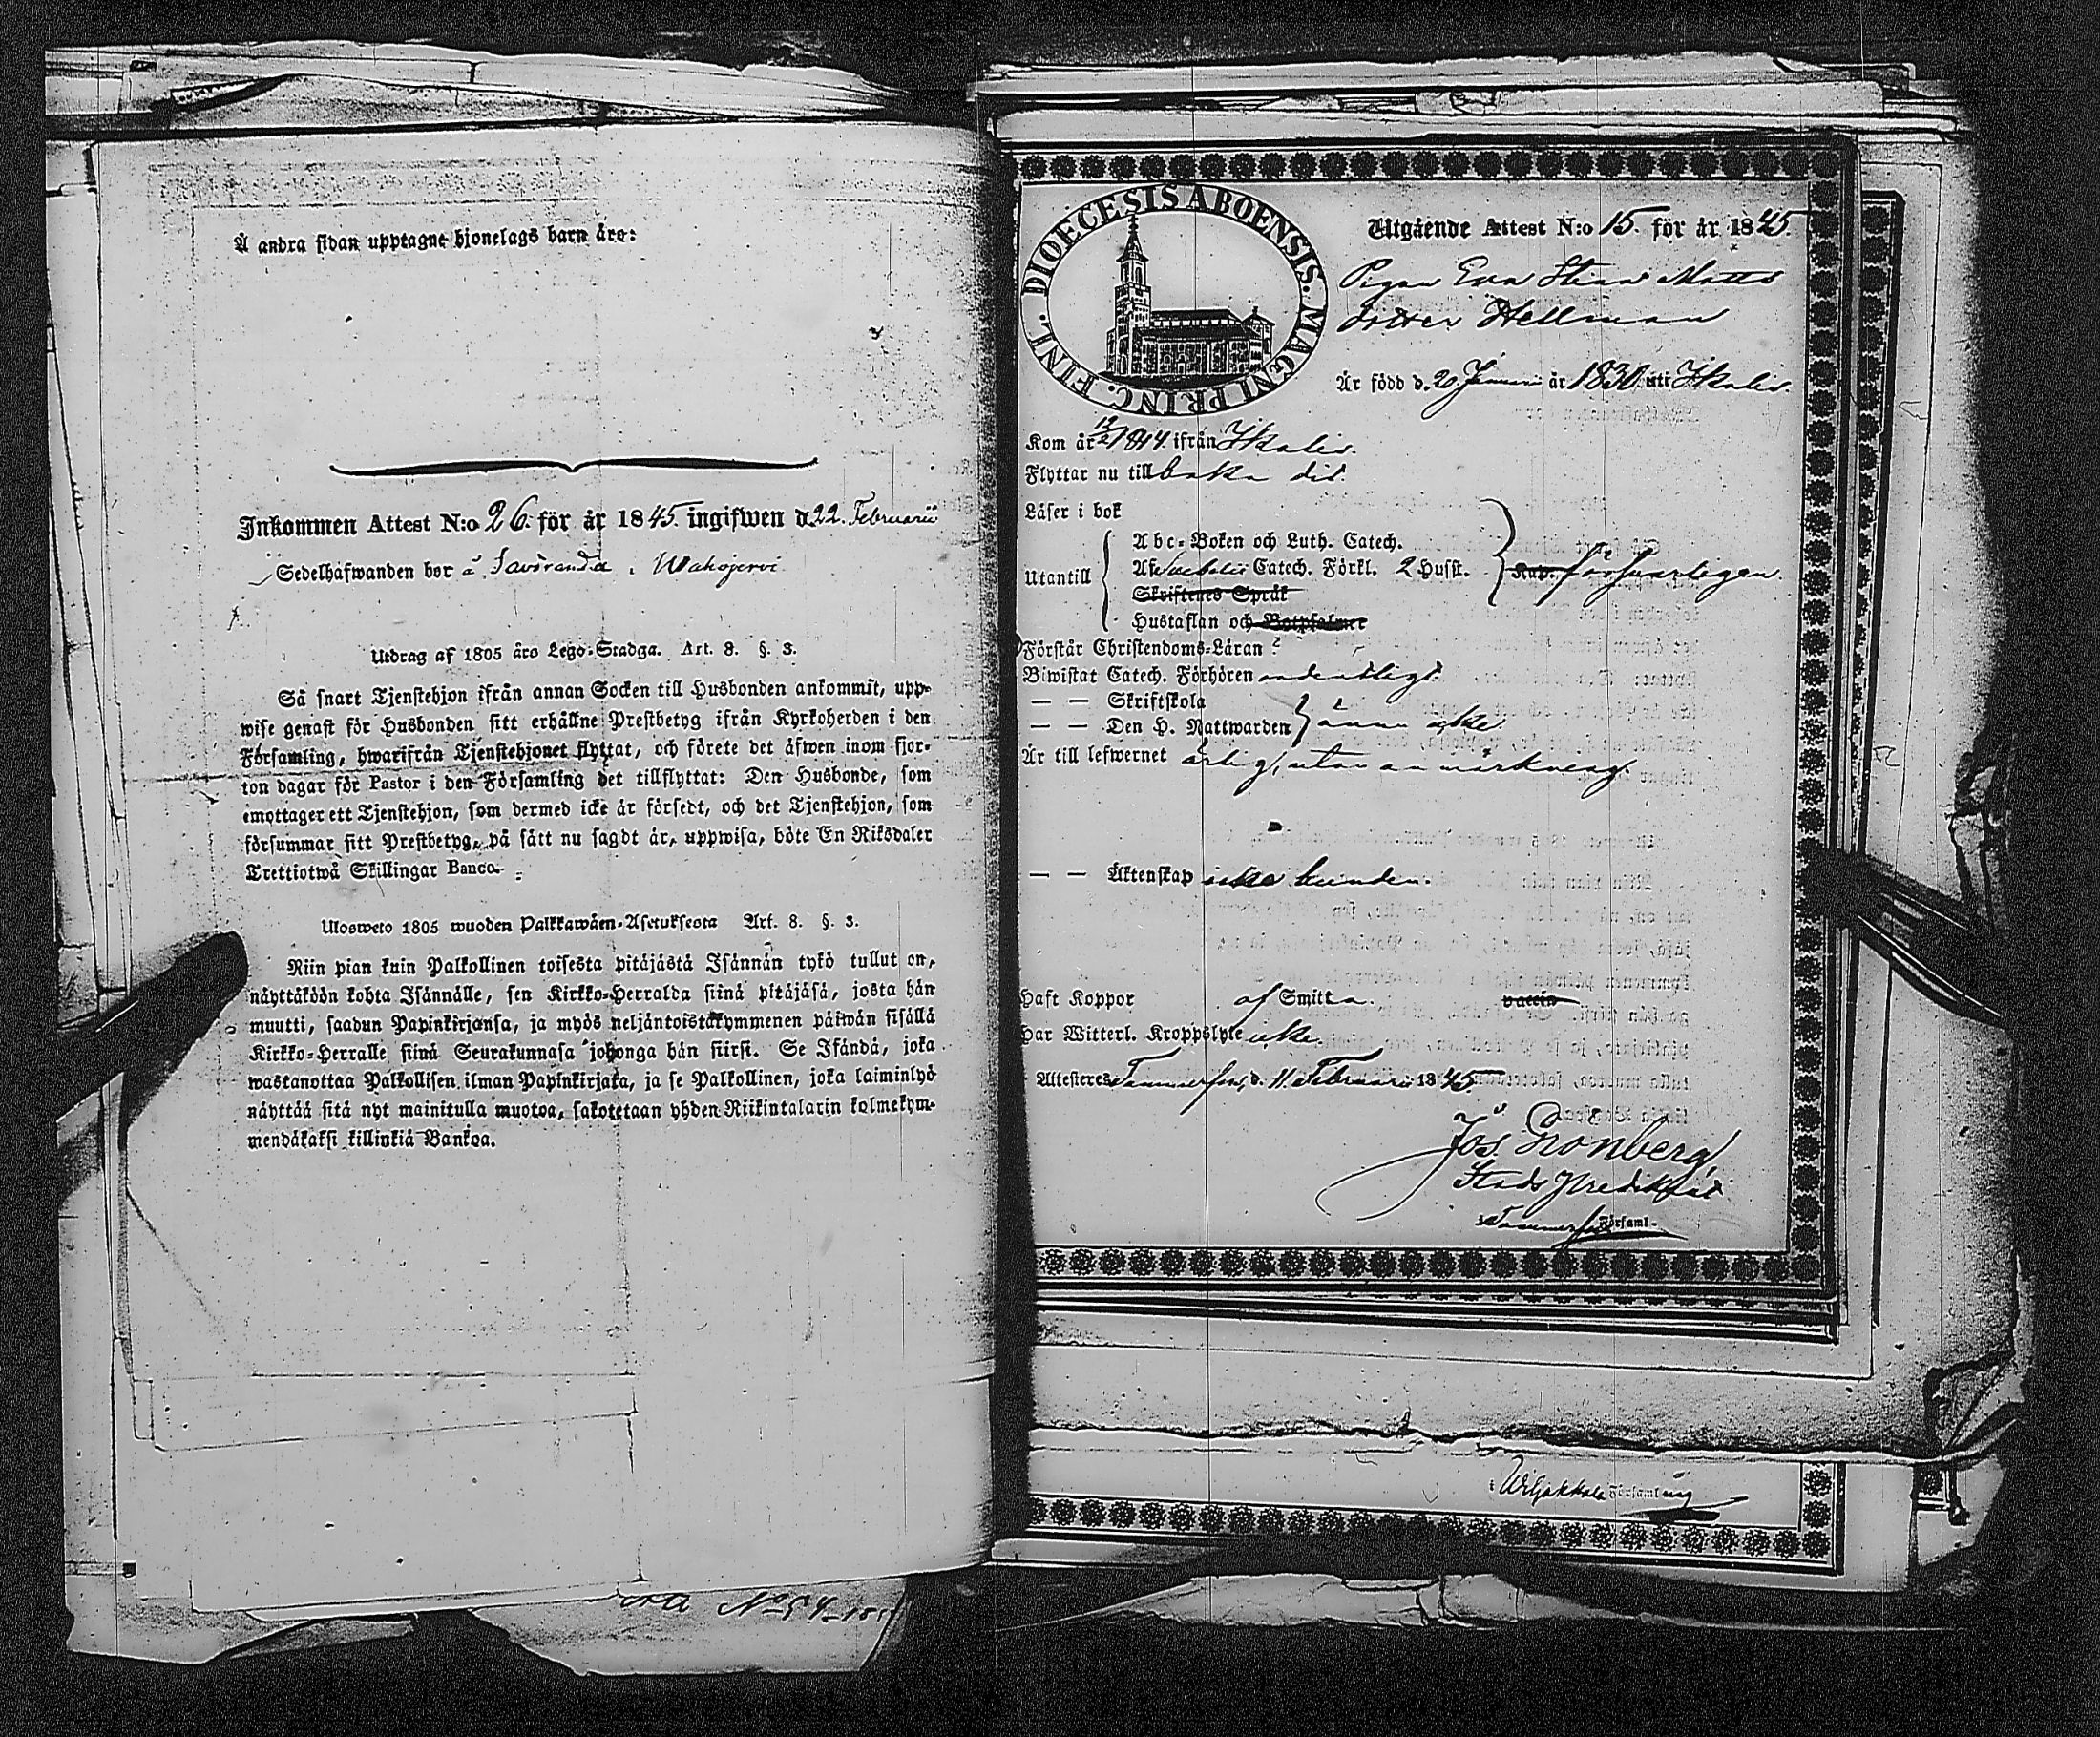 Å andra sidan upptagne hjonelags barn äro:
Inkommen Attest N:o 26. för år 1845. ingifwen d. 22. Februarii
Sedelhafwanden bor å Savoranda i Wahojervi
Utdrag af 1805 års Lego-Stadga. Art. 8. §. 3.
Så snart Tjenstehjon ifrån annan Socken till Husbonden ankommit, upp-
wise genast för Husbonden sitt erhållne Prestbetyg ifrån Kyrkoherden i den
Församling, hwarifrån Tjenstehjonet flyttat, och förete det äfwen inom fjor-
ton dagar för Pastor i den Församling det tillflyttat: Den Husbonde, som
emottager ett Tjenstehjon, som dermed icke är försedt, och det Tjenstehjon, som
försummar sitt Prestbetyg, på sätt nu sagdt är, uppwisa, böte En Riksdaler
Trettiotwå Skillingar Banco.
Ulosweto 1805 wuoden Palkkawäen-Asetuksesta Art. 8. §. 3.
Niin pian kuin Palkollinen toisesta pitäjästä Isännän tykö tullut on,
näyttäköön kohta Isännälle, sen Kirkko-Herralda siinä pitäjäsä, josta hän
muutti, saadun Papinkirjansa, ja myös neljäntoistakymmenen päiwän sisällä
Kirkko-Herralle siinä Seurakunnasa johonga hän siirsi. Se Isändä, joka
wastanottaa Palkollisen ilman Papinkirjata, ja se Palkollinen, joka laiminlyö
näyttää sitä nyt mainitulla muotoa, sakotetaan yhden Riikintalarin kolmekym-
mendäkaksi killinkiä Bankoa.
DIOECESIS ABOENSIS. MAGNI PRINC. FINL.
Utgående Attest N:o 15. för år 1845.
Pigan Eva Stina Matts
dotter Hellman
Är född d. 20 Januari år 1830 uti Ikalis.
Kom år 12/2 1844 ifrån Ikalis.
Flyttar nu till baka dit.
Läser i bok
Utantill
Abc-Boken och Luth. Catech.
Af Catech. Förkl. 2 Husst.
Skriftenes Språk
Hustaflan och Botpsalmer
försvarligen.
Förstår Christendoms-Läran
Biwistat Catech. Förhören ordentligt.
— — Skriftskola
— — Den H. Nattwarden ännu icke.
Är till lefwernet ärlig, utan anmärkning.
— — Äktenskap icke bunden.
Haft Koppor af Smitta. vaccin
Har Witterl. Kroppslyte icke.
Attesteres Tammerfors, d. 11. Februarii 1845.
Jos. Gronberg,
Stads Predikant
i Tammerfors Församl-
i Wiljakkala Församling